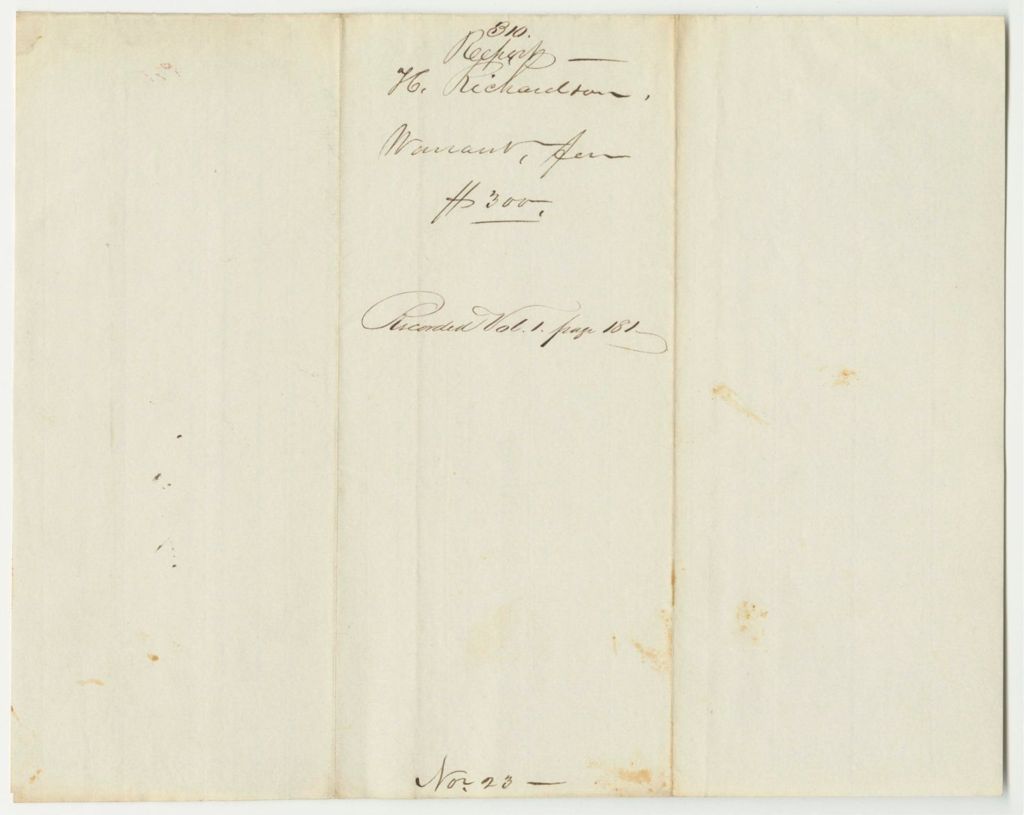 310.
Report —
H. Richardson.
Warrant, for
$300.
Recorded Vol. 1. page 181
Nov. 23 —